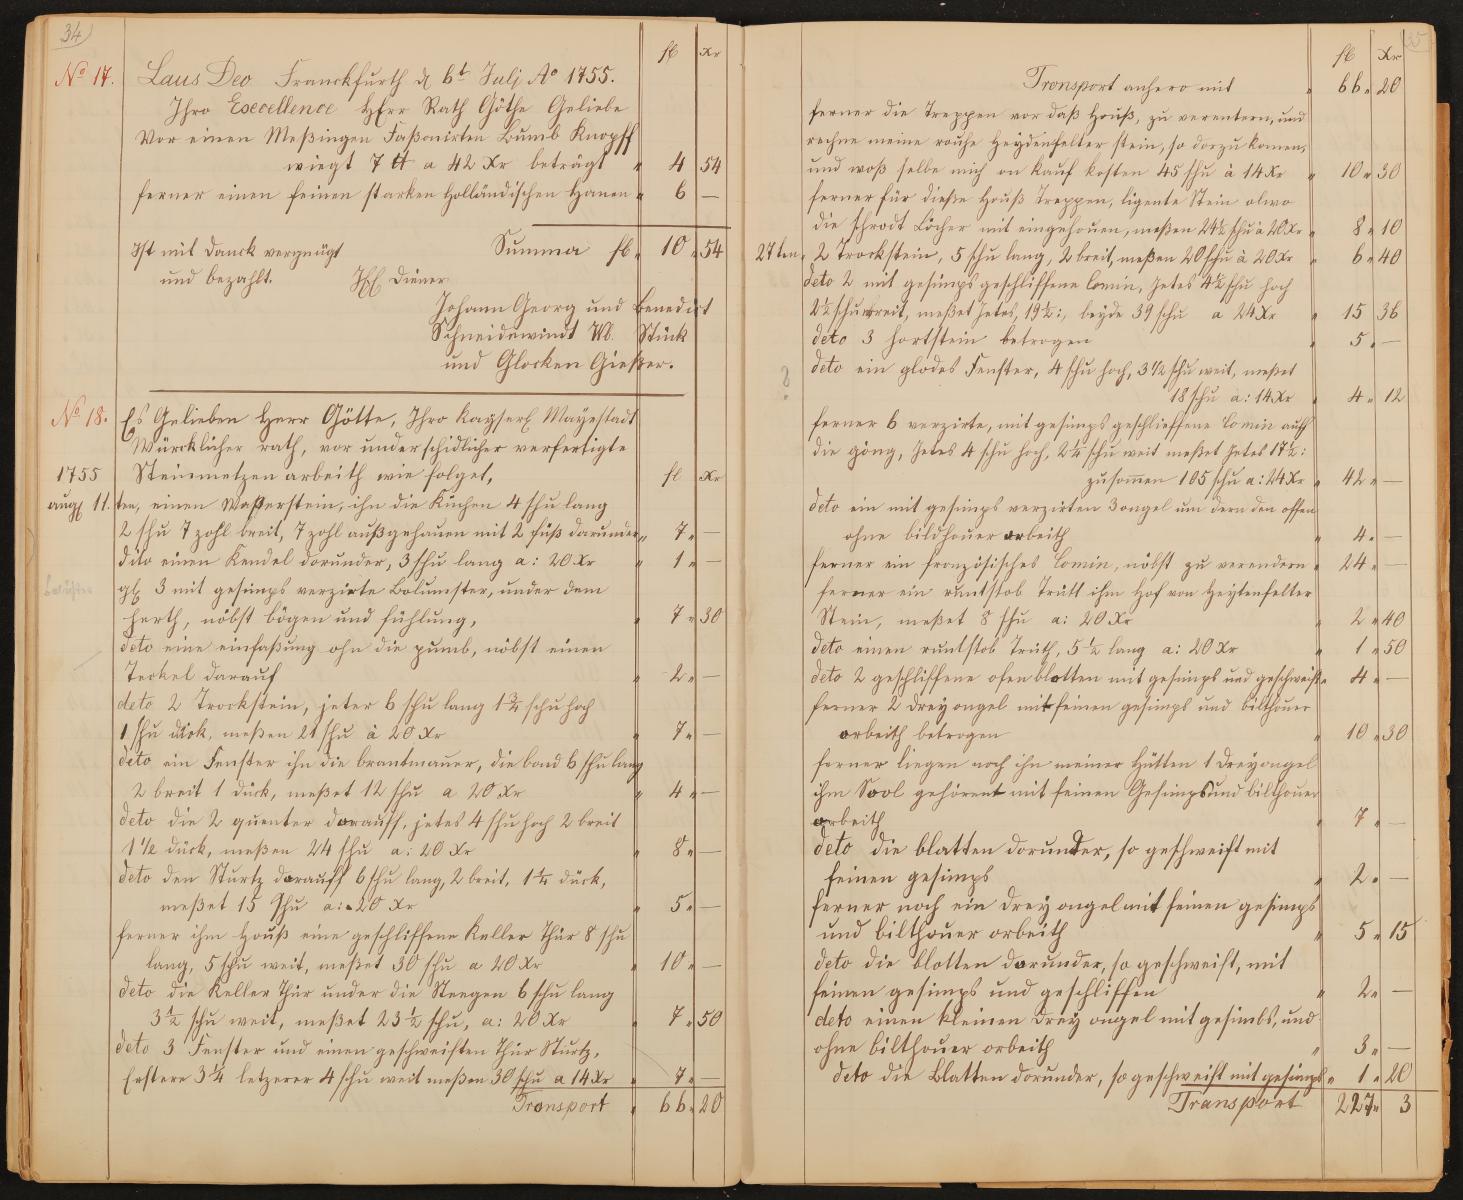 34
fl Xr
No 17. Laus Deo Franckfurth d 6t Julj Ao 1755.
Ihro Excellence HErr Rath Göthe Geliebe
Vor einen Meßingen Faßonirten Bumb Knopff
wiegt 7 ℔ a 42 Xr beträgt " 4 54
ferner einen feinen starken Holländischen Hanen " 6 —
Summa fl " 10 " 54
Ist mit Danck vergnügt
und bezahlt. Diener
Johann Georg und Benedict
Schneidewindt M. Stück
und Glocken Gießer.
No 18. Es Gelieben Herr Götte, Ihro Kayserl Mayestadt
Würcklicher rath, vor underschidlicher verfertigte
1755 Steinmetzen arbeith wie folget, fl Xr
aug 11. ten, einen Waßerstein, ihn die Küchen 4 schu lang
2 schu 7 zohl breit, 7 zohl außgehauen mit 2 füß darunder " 7 " —
dito einen Kendel darunder, 3 schu lang a: 20 Xr " 1 " —
3 mit gesimps verzirte Balumster, under dem
herth, nöbst bögen und fühlung, " 7 " 30
deto eine einfaßung ohn die pumb, nöbst einen
Teckel darauf " 2 " —
deto 2 Trockstein, jeter 6 schu lang 1 3/4 schu hoch
1 schu dick, meßen 21 schu à 20 Xr " 7 " —
deto ein Fenster ihn die brantmauer, die band 6 schu lang
2 breit 1 dück, meßet 12 schu a 20 Xr " 4 " —
deto die 2 quenter darauff, jetes 4 schu hoch 2 breit
1 1/2 dück, meßen 24 schu a: 20 Xr " 8 " —
deto den Sturtz darauff 6 schu lang, 2 breit, 1 1/4 dück,
meßet 15 schu a: 20 Xr " 5 " —
ferner ihm Hauß eine geschliffene Keller Thür 8 schu
lang, 5 schu weit, meßet 30 schu a 20 Xr " 10 " —
deto die Keller Thür under die Steegen 6 schu lang
3 1/2 schu weit, meßet 23 1/2 schu, a: 20 Xr " 7 " 50
deto 3 Fenster und einen geschweiften Thür Sturtz,
Erstere 3 1/4 letzerer 4 schu weit meßen 30 schu a 14 Xr " 7 " —
Transport " 66 " 20
35
fl Xr
Transport anhero mit " 66 " 20
ferner die Treppen vor daß Hauß, zu verentern, und
rechne meine rauhe Heydenfelter stein, so darzu komen,
und waß selbe mich an kauf kosten 45 schu à 14 Xr " 10 " 30
ferner für dieße Hauß Treppen, ligente Stein alwo
die schrodt Löcher mit eingehauen, meßen 24 1/2 schu à 20 Xr " 8 " 10
27 ten, 2 Trockstein, 5 schu lang, 2 breit, meßen 20 schu à 20 Xr " 6 " 40
deto 2 mit gesimps geschliffene Comin, jetes 4 1/2 schu hoch
2 1/2 schu breit, meßet jetes, 19 1/2:, beyde 39 schu a 24 Xr " 15 36
deto 3 hartstein betragen " 5 " —
deto ein glades Fenster, 4 schu hoch, 3 1/2 schu weit, meßet
18 schu a: 14 Xr " 4 " 12
ferner 6 verzirte, mit gesimps geschlieffene Comin auth
die gäng, jetes 4 schu hoch, 2 1/4 schu weit meßet jetes 17 1/2:
zusamen 105 schu a: 24 Xr " 42 " —
deto ein mit gesimps verzirten 3 angel um dern den offen
ohne bildhauer arbeith " 4 " —
ferner ein französisches Comin, nöbst zu verendern " 24 " —
ferner ein runtstab Tritt ihm Hof von Heytenfelter
Stein, meßet 8 schu a: 20 Xr " 2 " 40
deto einen runtstab Truth, 5 1/2 lang a: 20 Xr " 1 " 50
deto 2 geschliffene ofen blatten mit gesimps und geschweist " 4 " —
ferner 2 Drey angel mit feinen gesimps und bilthauer
arbeith betragen " 10 " 30
ferner liegen noch ihn meiner Hütten 1 Dreyangel
ihm Saal gehörent mit feinen Gesimps und bilthauer
arbeith " 7 " —
deto die blatten darunder, so geschweift mit
feinen gesimps " 2 " —
ferner noch ein Drey angel mit feinen gesimps
und bilthauer arbeith " 5 " 15
deto die blatten darunder, so geschweift, mit
feinen gesimps und geschliffen " 2 " —
deto einen kleinen Drey angel mit gesimbs, und
ohne bilthauer arbeith " 3 " —
deto die Blatten darunder, so geschweift mit gesimps " 1 " 20
Transport 227 " 3